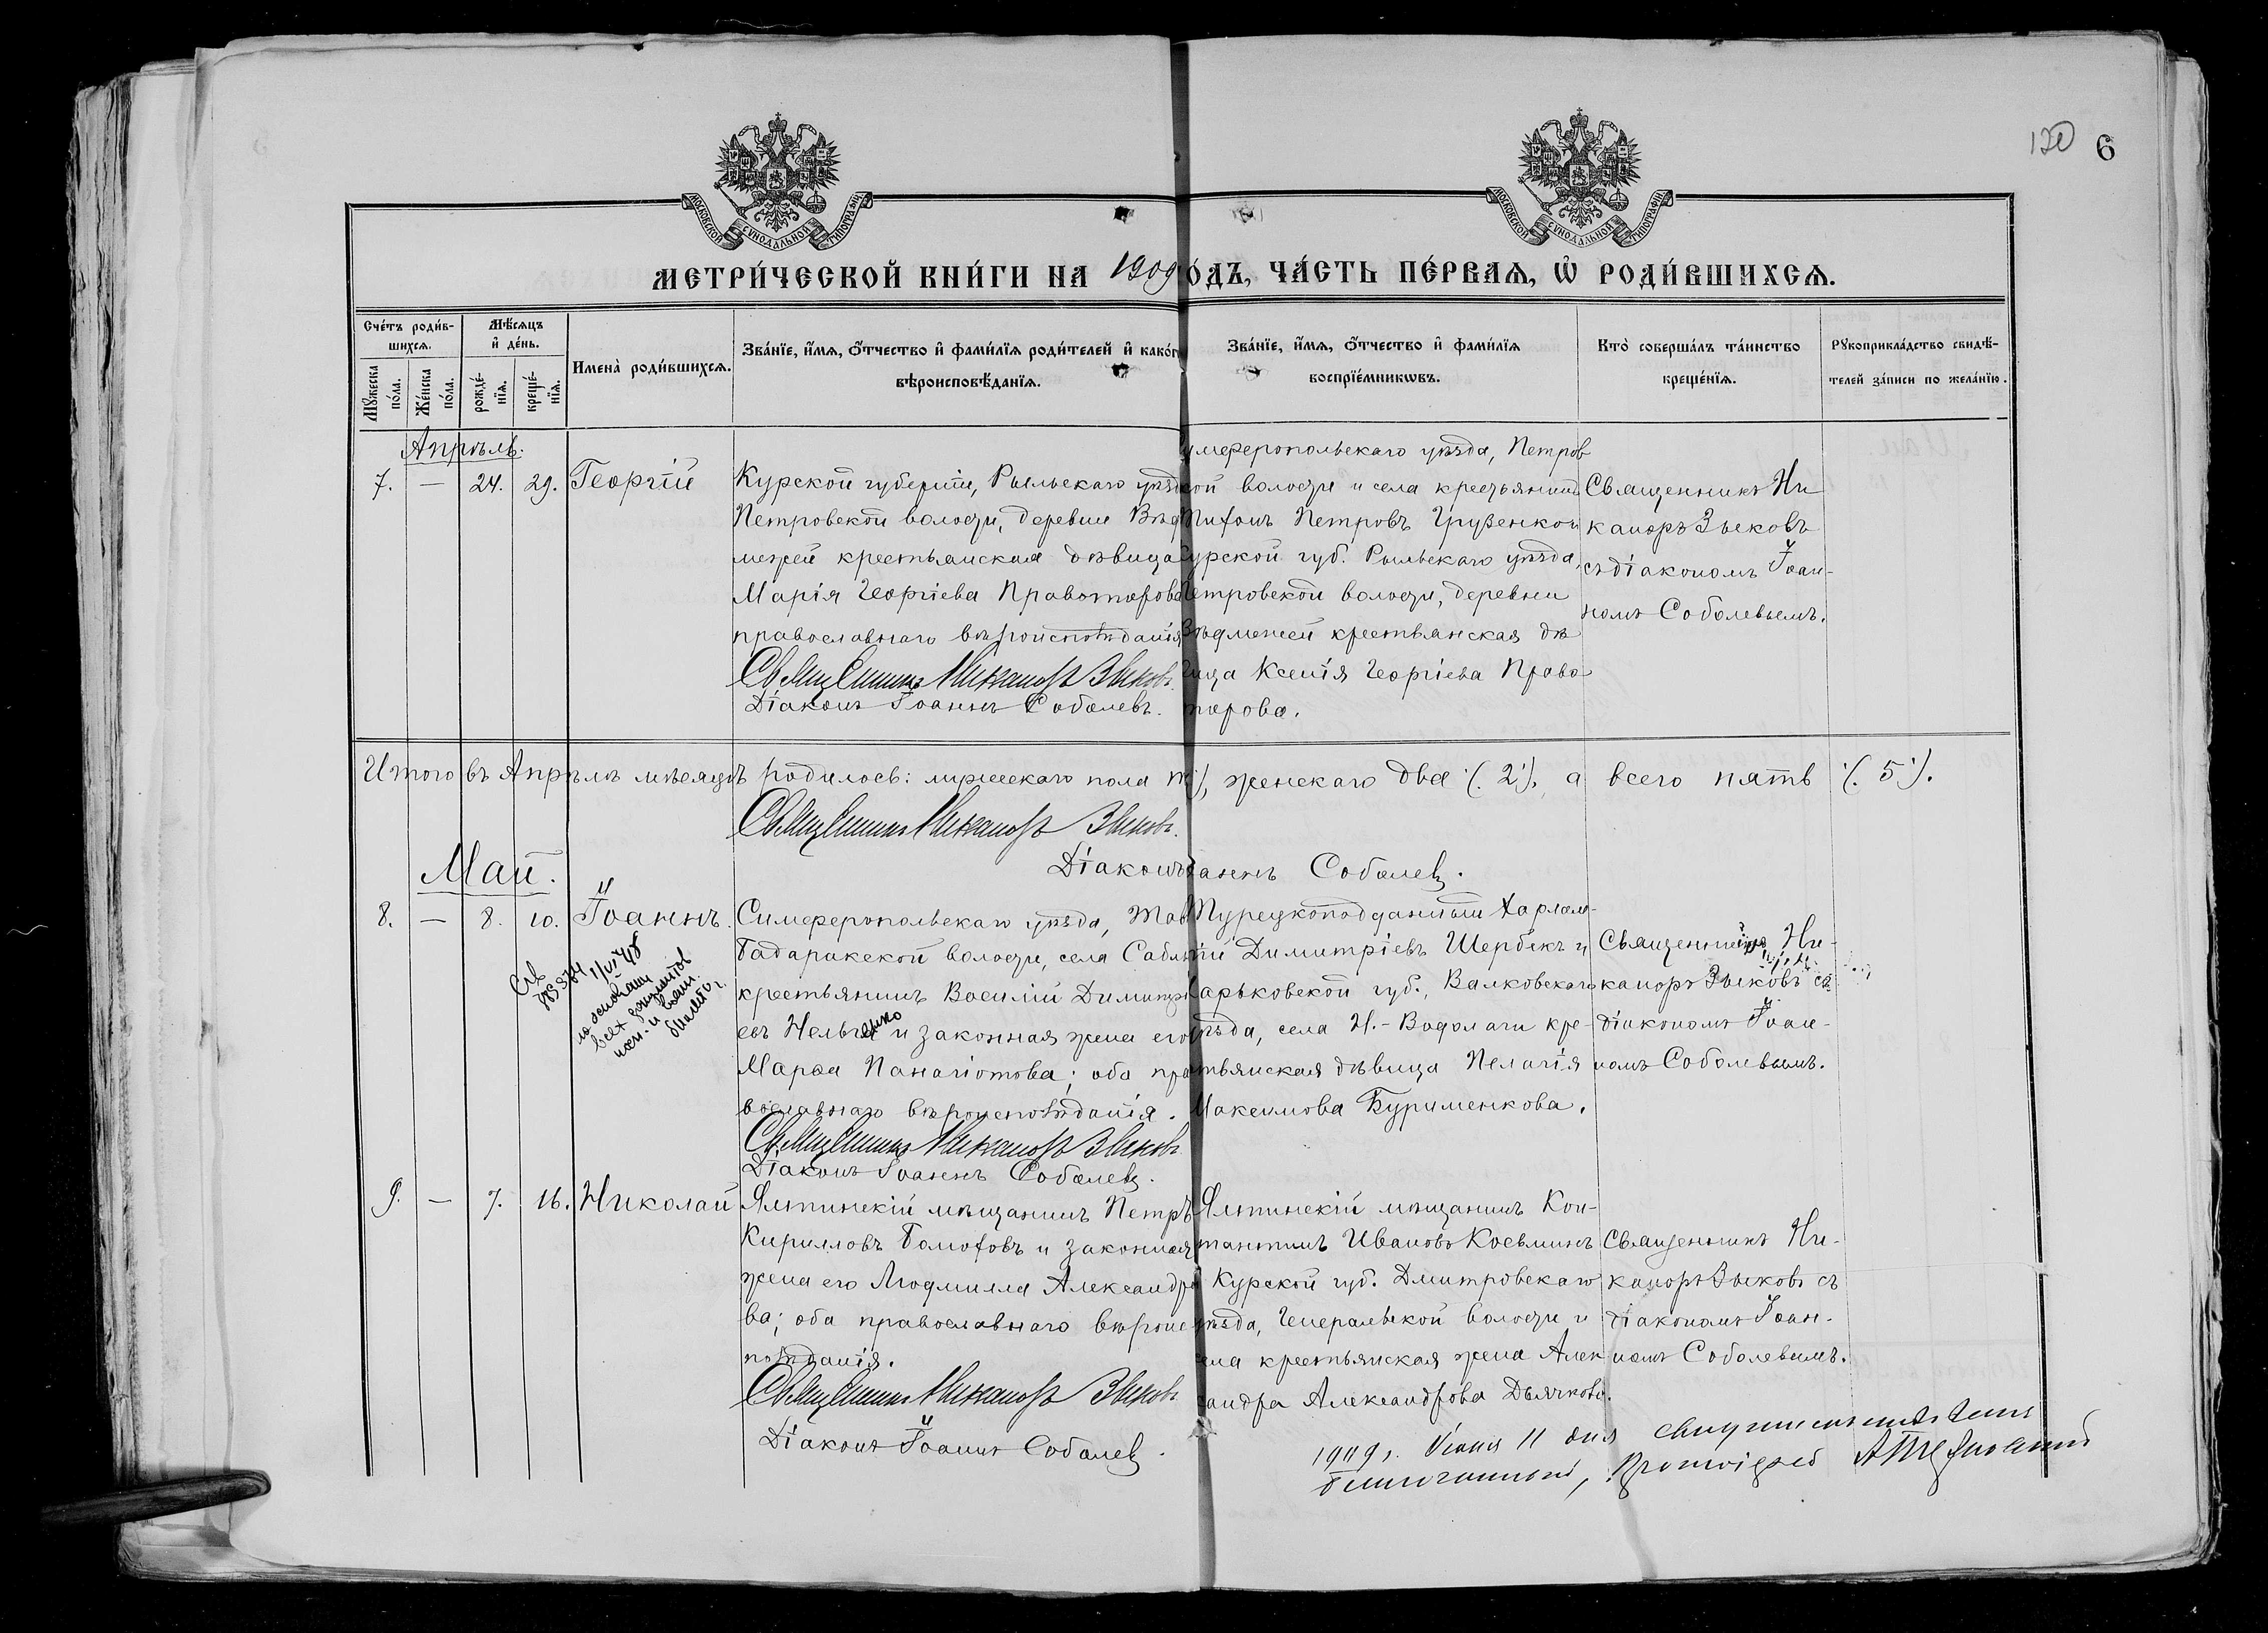 120 6
МОСКОВСКОЙ СѴНОДАЛЬНОЙ ТИПОГРАФІИ
МОСКОВСКОЙ СѴНОДАЛЬНОЙ ТИПОГРАФІИ
МЕТРИ́ЧЕСКОЙ КНИ́ГИ НА 1909 ОДЪ, ЧА́СТЬ ПЕ́РВАѦ, Ѡ҆ РОДИ́ВШИХСѦ.
Сче́тъ роди́в-
шихсѧ.
Мꙋ́жеска
по́ла.
Же́нска
по́ла.
Мѣ́сѧцъ
и҆ де́нь.
рожде́-
нїѧ.
креще́-
нїѧ.
Имена̀ роди́вшихсѧ.
Зва́нїе, и҆́мѧ, ѻ҆́тчество и҆ фами́лїѧ роди́телей и҆ како́г
вѣроисповѣ́данїѧ.
Зва́нїе, и҆́мѧ, ѻ҆́тчество и҆ фами́лїѧ
воспрїе́мникѡвъ.
Кто̀ соверша́лъ та́инство
креще́нїѧ.
Рꙋкоприкла́дство свидѣ́-
телей за́писи по жела́нїю.
Апрѣль.
7. — 24. 29. Георгій
Курской губерніи, Рыльскаго уѣзд
Петровской волости, деревни Вѣд
межей крестьянская дѣвица
Марія Георгіева Правоторова
православнаго вѣроисповѣданія
Священникъ Никаноръ Зыковъ
Діаконъ Іоаннъ Соболевъ.
имферопольскаго уѣзда, Петров
кой волости и села крестьянинъ
Пифонъ Петровъ
урской губ. Рыльскаго уѣзда,
етровской волости, деревни
Вѣдмежей крестьянская дѣ
вица Ксенія Георгіева Право
торова.
Священникъ Ни
каноръ Зыковъ
съ діакономъ Іоан-
номъ Соболевымъ.
Итого въ Апрѣлѣ мѣсяцѣ родилось: мужескаго пола ), женскаго два (. 2 ), а всего пять (. 5 ).
Священникъ Никаноръ Зыковъ.
Діаконъ оаннъ Соболевъ.
Май.
8. — 8. 10. Іоаннъ.
Симферопольскаго уѣзда, Тав
Бадаракской волости, села Саблы
крестьянинъ Василій Димитрі
евъ и законная жена его
Марѳа Панагіотова; оба пра
вославнаго вѣроисповѣданія.
Священникъ Никаноръ Зыковъ
Діаконъ Іоаннъ Соболевъ.
Турецкоподданный Харлам-
пій Димитріевъ Шербекъ и
Харьковской губ., Валковскаго
уѣзда, села Н.-Водолаги кре-
тьянская дѣвица Пелагія
Максимова Буримекова.
Священникъ Ни-
каноръ Зыковъ съ
діакономъ Іоан-
номъ Соболевымъ.
9. — 7. 16. Николай
Ялтинскій мѣщанинъ Петръ
Кирилловъ и законная
жена его Людмила Александро
ва; оба православнаго вѣроис
повѣданія.
Священникъ Никаноръ Зыковъ
Діаконъ Іоаннъ Соболевъ.
Ялтинскій мѣщанинъ Кон-
тантинъ Ивановъ Косьминъ
Курской губ. Дмитровскаго
уѣзда, Генеральской волости и
ела крестьянская жена Алек
сандра Александрова Дьячкова.
Священникъ Ни-
каноръ Зыковъ съ
діакономъ Іоан-
номъ Соболевымъ.
1909 г. Іюня 11 дня
Благочинный, Протоіерей